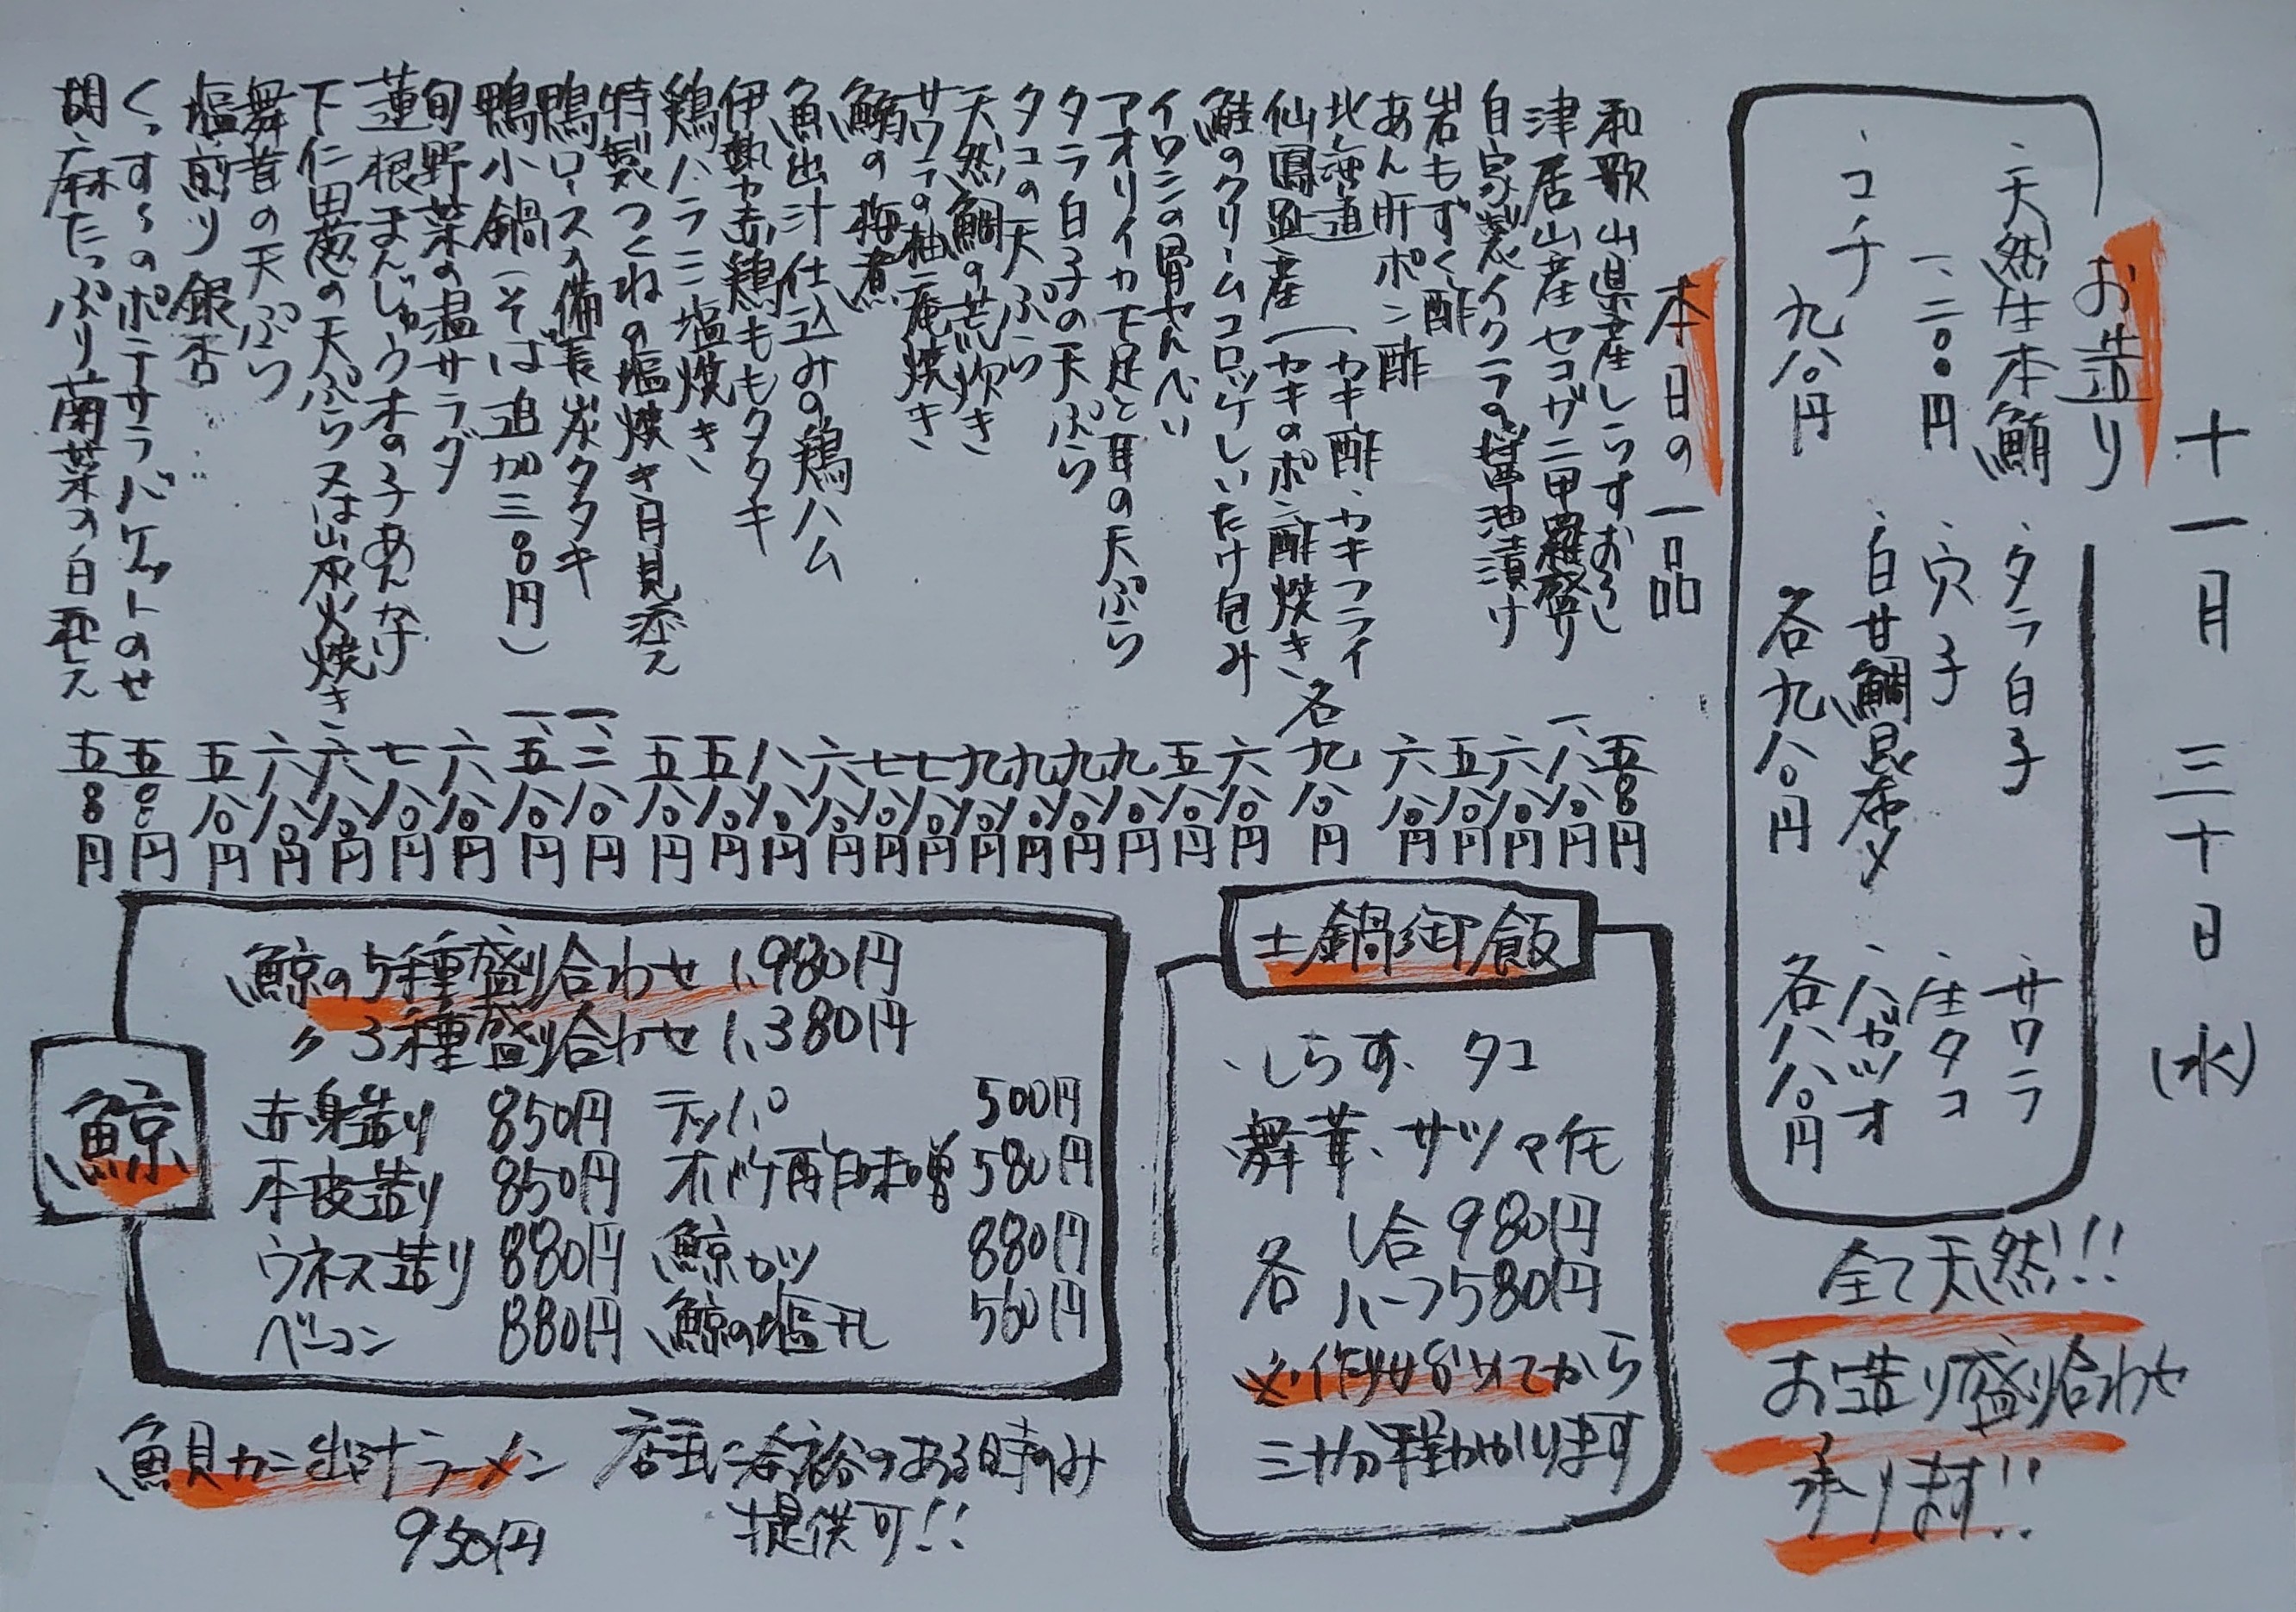 十一月 三十日(水)
お造り
、天然生本鮪
一、二〇〇円
、コチ
九八〇円
、タラ白子
、穴子
、白甘鯛昆布〆
各九八〇円
、サワラ
、生タコ
、ハガツオ
各八八〇円
全て天然!!
お造り盛り合わせ
承ります!!
本日の一品
和歌山県産しらすおろし 五八〇円
津居山産セコガニ甲羅盛り 一、八八〇円
自家製イクラの醤油漬け 六八〇円
岩もずく酢 五八〇円
あん肝ポン酢 六八〇円
北海道 カキ酢、カキフライ
仙鳳趾産 カキのポン酢焼き、各 九八〇円
鮭のクリームコロッケしいたけ包み 六八〇円
イワシの骨せんべい 五八〇円
アオリイカ下足と耳の天ぷら 九八〇円
タラ白子の天ぷら 九八〇円
タコの天ぷら 九八〇円
天然鯛の荒炊き 九八〇円
サワラの柚庵焼き 七八〇円
鰯の梅煮 七八〇円
魚出汁仕込みの鶏ハム 六八〇円
伊勢赤鶏ももタタキ 八八〇円
鶏ハラミ塩焼き 五八〇円
特製つくねの塩焼き月見添え 五八〇円
鴨ロースの備長炭タタキ 一、二八〇円
鴨小鍋(そば追加三〇〇円) 一、五八〇円
旬野菜の温サラダ 六八〇円
蓮根まんじゅうオの子あんかけ 七八〇円
下仁田葱の天ぷら又は山原火焼き 六八〇円
舞茸の天ぷら 六八〇円
塩煎り銀杏 五八〇円
くっすーのポテサラバケットのせ 五〇〇円
胡麻たっぷり菊菜の白和え 五〇〇円
土鍋御飯
、しらす、タコ
舞茸、サツマ芋
各 1合980円
ハーフ580円
※作り始めてから
三十分程かかります
鯨
鯨の5種盛り合わせ 1,980円
〃 3種盛り合わせ 1,380円
赤身造り 850円 テッパ 500円
本皮造り 850円 オバケ酢味噌 580円
ウネス造り 880円 鯨カツ 880円
ベーコン 880円 鯨の塩干し 560円
魚貝カニ出汁ラーメン 店主に余裕のある時のみ
950円 提供可!!